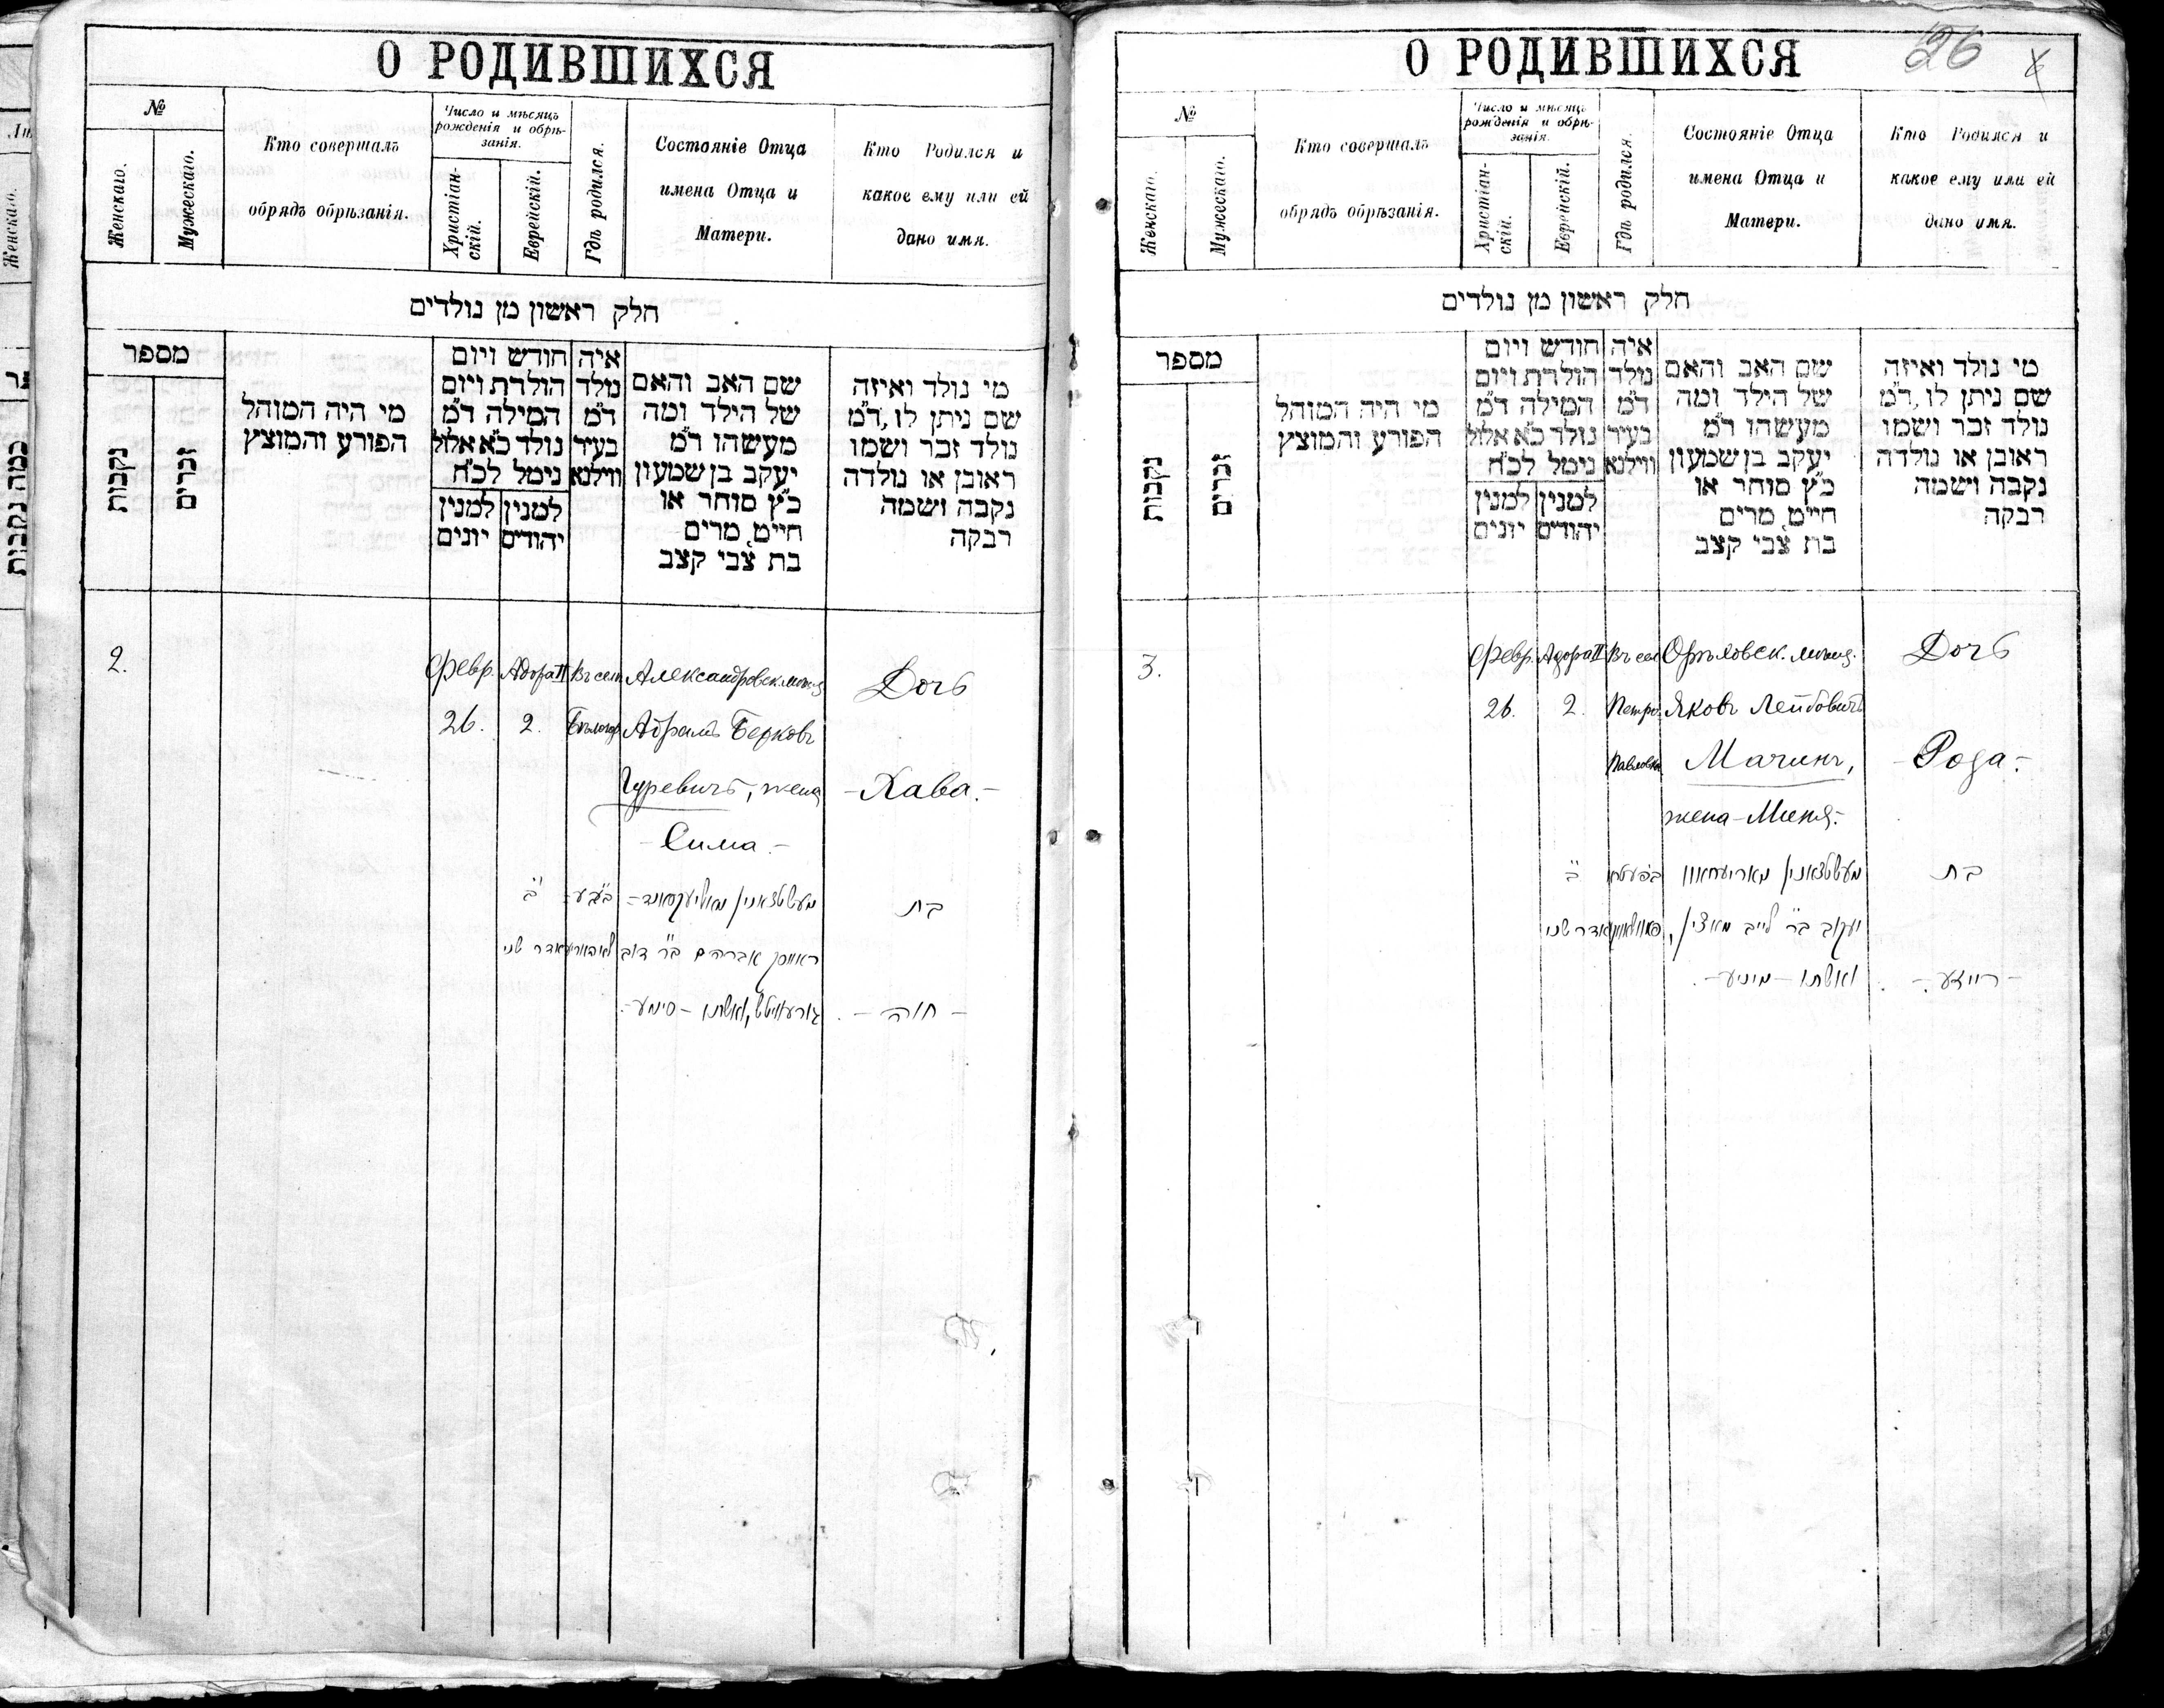 О РОДИВШИХСЯ
№
Женскаго.
Мужескаго.
Кто совершалъ
обрядъ обрѣзанія.
Число и мѣсяцъ
рожденія и обрѣ-
занія.
Христіан-
скій.
Еврейскій.
Гдѣ родился.
Состояніе Отца
имена Отца и
Матери.
Кто Родился и
какое ему или ей
дано имя.
חלק ראשון מן נולדים
מספר
נקבות
זכרים
מי היה המוהל
הפורע והמוצץ
חודש ויום
הולדת ויום
המילה ד"מ
נולד כ"א אלול
נימל לכ"ח
למנין יונים
למנין יהודים
איה
נולד
ד"מ
בעיר
ווילנא
שם האב והאם
של הילד ומה
מעשהו ד"מ
יעקב בן שמעון
כ"ץ סוחר או
חייט מרים
בת צבי קצב
מי נולד ואיזה
שם ניתן לו ד"מ
נולד זכר ושמו
ראובן או נולדה
נקבה ושמה
רבקה
2.
Февр.
26.
Адора II
2.
Въ сел.
Александровск. мѣщ.
Абрамъ Берковъ
Гуревичъ, жена
- Сима. -
Дочь
- Хава. -
ב'
אדר שני
אברהם ב"ר דוב
ואשתו - סימע -
בת
- חוה -
О РОДИВШИХСЯ
26
№
Женскаго.
Мужескаго.
Кто совершалъ
обрядъ обрѣзанія.
Число и мѣсяцъ
рожденія и обрѣ-
занія.
Христіан-
скій.
Еврейскій.
Гдѣ родился.
Состояніе Отца
имена Отца и
Матери.
Кто Родился и
какое ему или ей
дано имя.
חלק ראשון מן נולדים
מספר
נקבות
זכרים
מי היה המוהל
הפורע והמוצץ
חודש ויום
הולדת ויום
המילה ד"מ
נולד כ"א אלול
נימל לכ"ח
למנין יונים
למנין יהודים
איה
נולד
ד"מ
בעיר
ווילנא
שם האב והאם
של הילד ומה
מעשהו ד"מ
יעקב בן שמעון
כ"ץ סוחר או
חייט מרים
בת צבי קצב
מי נולד ואיזה
שם ניתן לו ד"מ
נולד זכר ושמו
ראובן או נולדה
נקבה ושמה
רבקה
3.
Февр.
26.
Адора II
2.
Въ сел.
Петро-
Павловка
Орѣховск. мѣщ.
Яковъ Лейбовичъ
Мачинъ,
жена - Миня. -
Дочь
- Рода. -
ב'
אדר שני
יעקוב ב"ר לייב
ואשתו - מיניע -
בת
- ריידע -